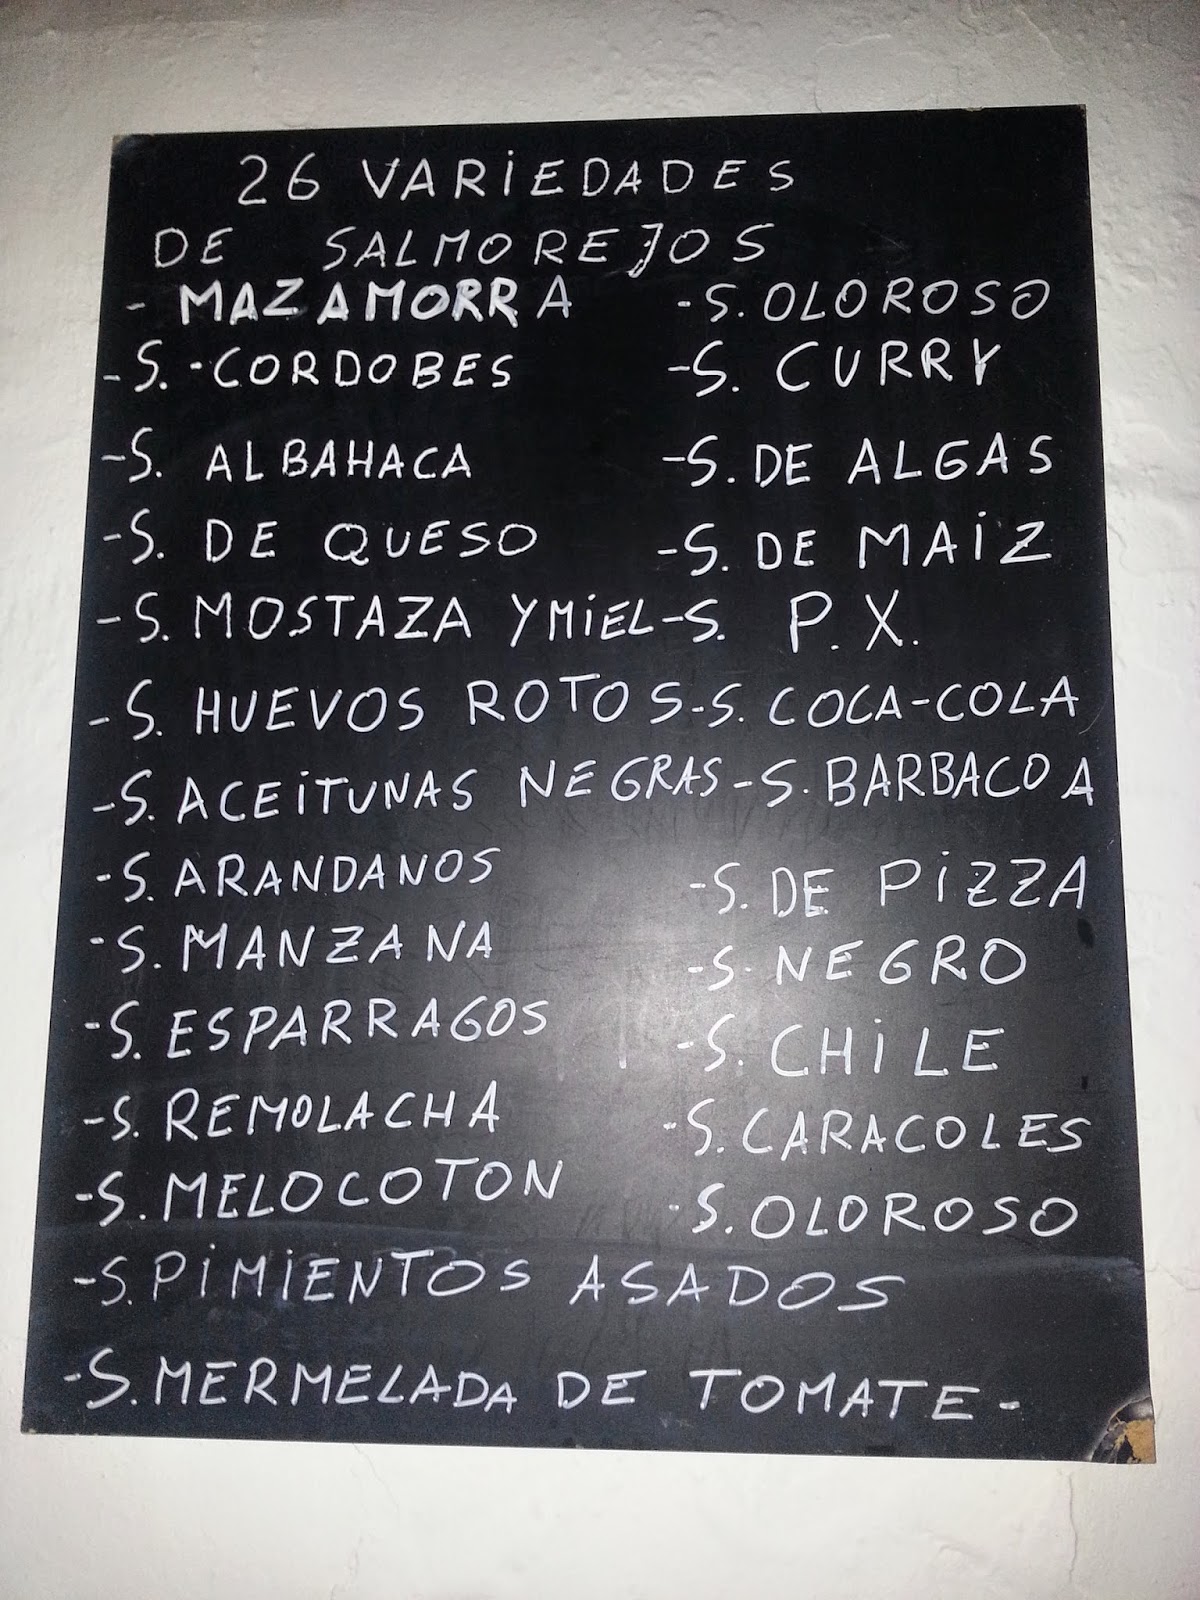 26 VARIEDADES
DE SALMOREJOS
- MAZAMORRA -S. OLOROSO
-S.-CORDOBES -S. CURRY
-S. ALBAHACA -S. DE ALGAS
-S. DE QUESO -S. DE MAIZ
-S. MOSTAZA Y MIEL -S. P.X.
-S. HUEVOS ROTOS -S. COCA-COLA
-S. ACEITUNAS NEGRAS -S. BARBACOA
-S. ARANDANOS -S. DE PIZZA
-S. MANZANA -S. NEGRO
-S. ESPARRAGOS -S. CHILE
-S. REMOLACHA -S. CARACOLES
-S. MELOCOTON -S. OLOROSO
-S. PIMIENTOS ASADOS
-S. MERMELADA DE TOMATE-